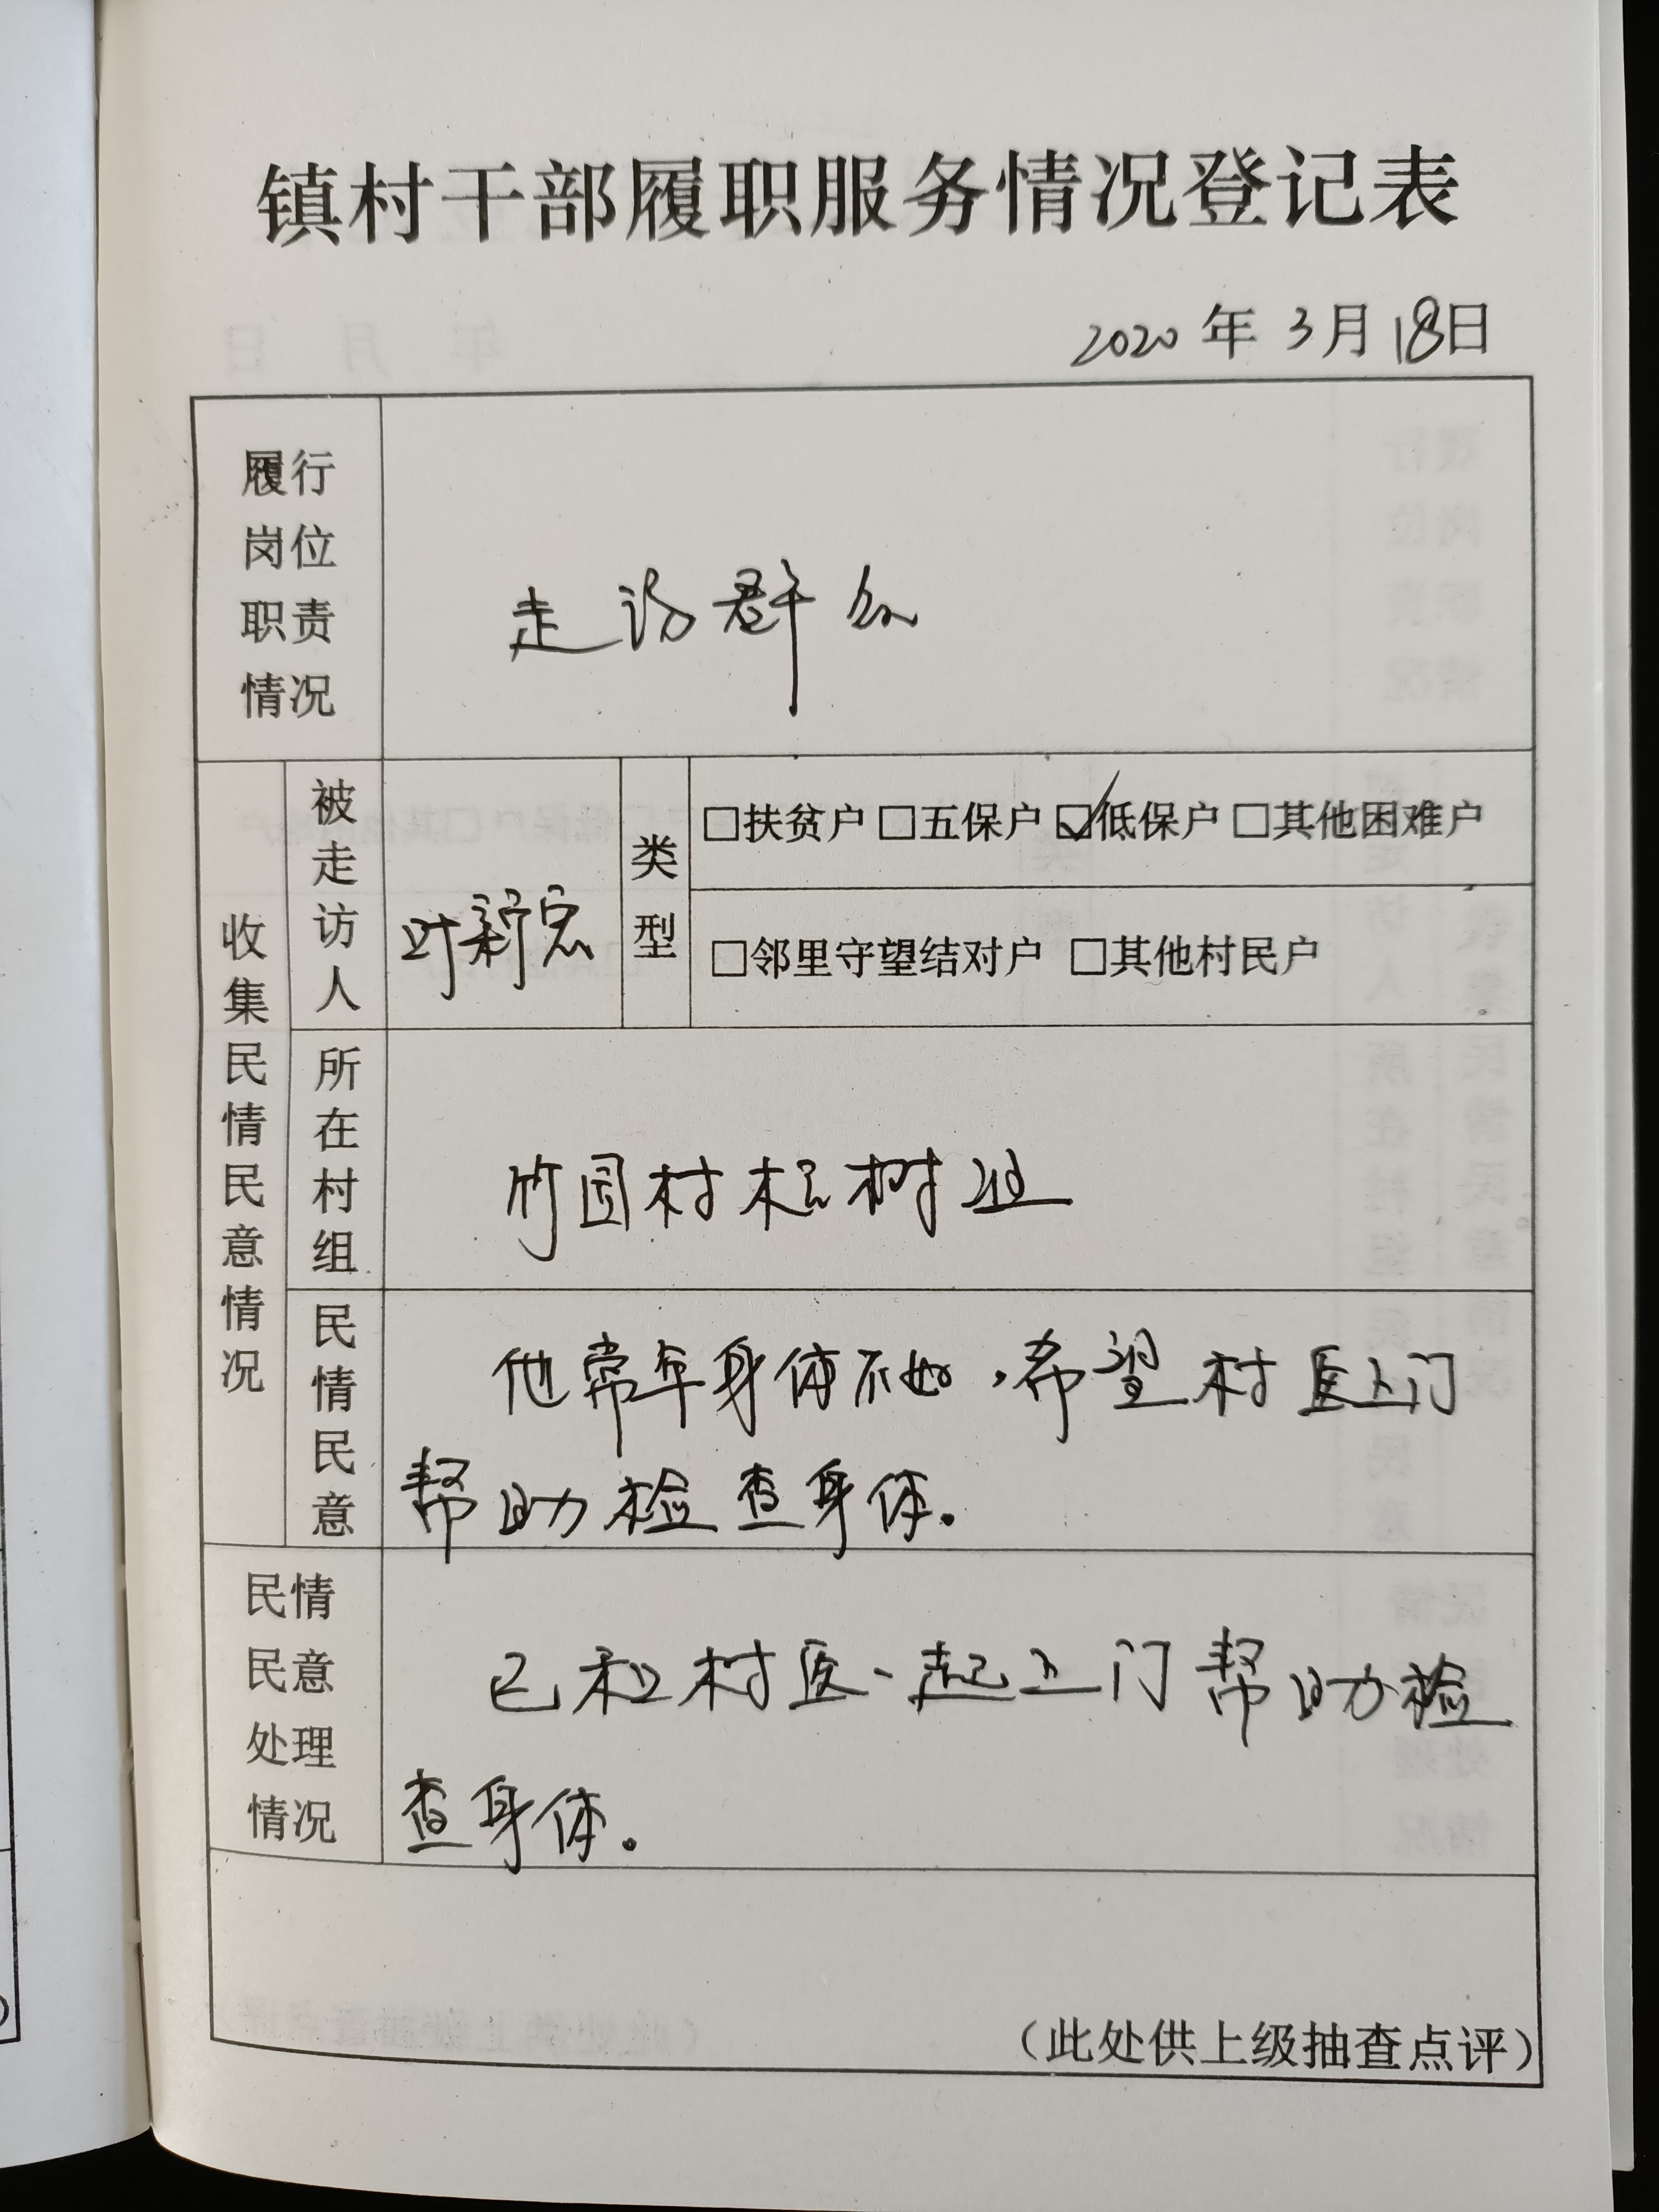 镇村干部履职服务情况登记表
2020年3月18日
履行
岗位
职责
情况
走访群众
收集民情民意情况
被走访人
叶新宏
类型
□扶贫户 □五保户 ☑低保户 □其他困难户
□邻里守望结对户 □其他村民户
所在村组
竹园村 树组
民情民意
他常年身体不好,希望村医上门
帮助检查身体。
民情
民意
处理
情况
已和村医一起上门帮助检
查身体。
(此处供上级抽查点评)